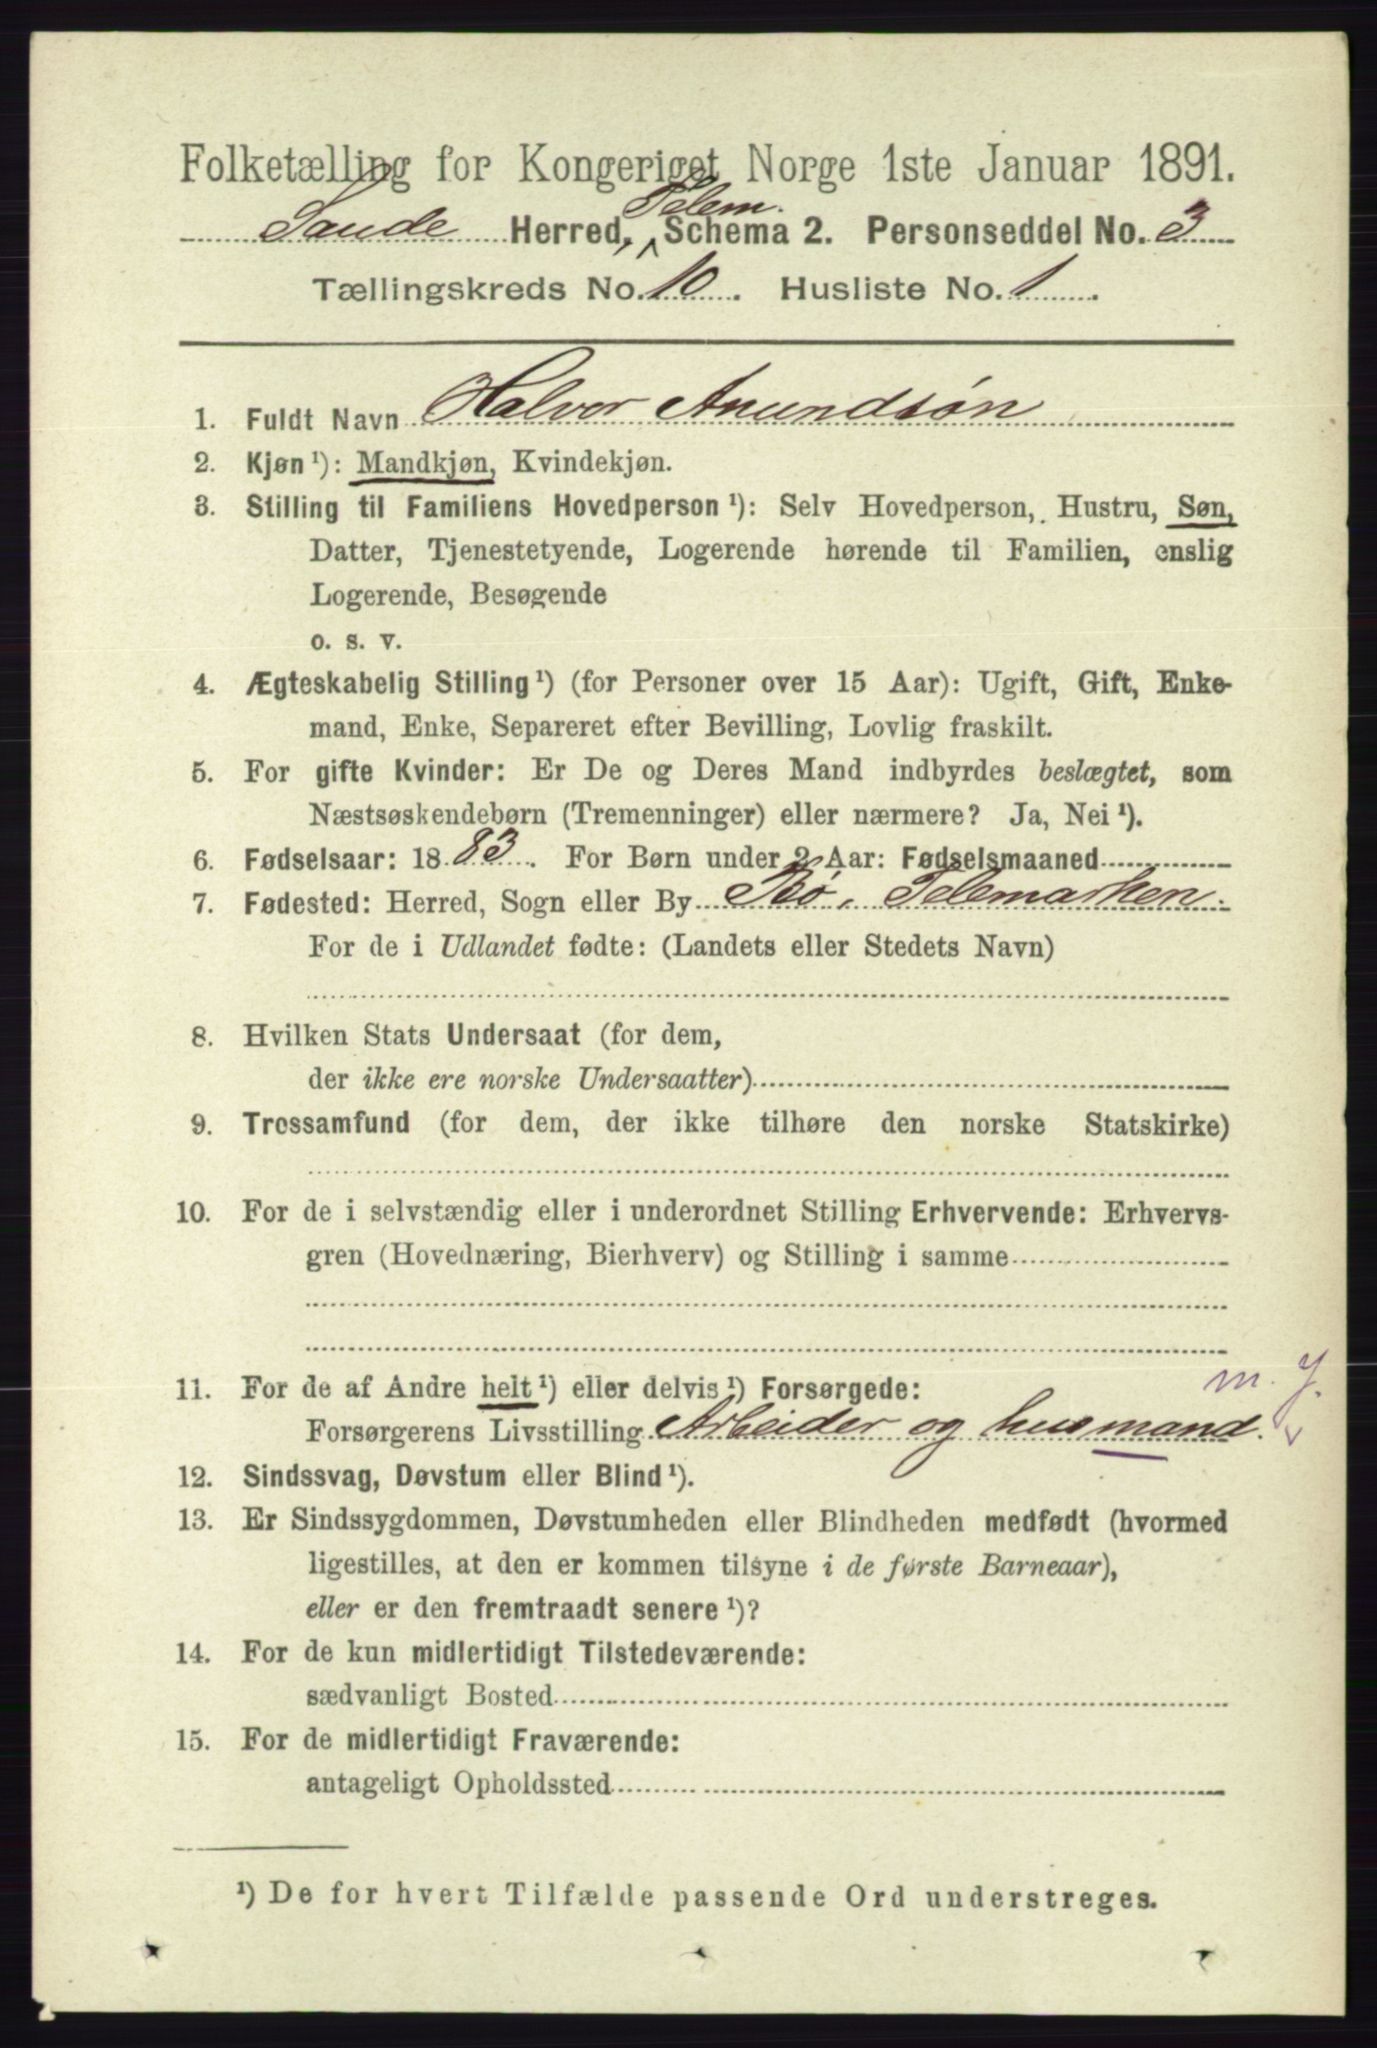 Folketælling for Kongeriget Norge 1ste Januar 1891.
Telem.
Saude Herred, Schema 2. Personseddel No. 3
Tællingskreds No. 10. Husliste No. 1.
1. Fuldt Navn Halvor Anundsøn
2. Kjøn ¹): Mandkjøn, Kvindekjøn.
3. Stilling til Familiens Hovedperson ¹): Selv Hovedperson, Hustru, Søn,
Datter, Tjenestetyende, Logerende hørende til Familien, enslig
Logerende, Besøgende
o. s. v.
4. Ægteskabelig Stilling ¹) (for Personer over 15 Aar): Ugift, Gift, Enke-
mand, Enke, Separeret efter Bevilling, Lovlig fraskilt.
5. For gifte Kvinder: Er De og Deres Mand indbyrdes beslægtet, som
Næstsøskendebørn (Tremenninger) eller nærmere? Ja, Nei ¹).
6. Fødselsaar: 1883. For Børn under 2 Aar: Fødselsmaaned
7. Fødested: Herred, Sogn eller By Bø, Telemarken.
For de i Udlandet fødte: (Landets eller Stedets Navn)
8. Hvilken Stats Undersaat (for dem,
der ikke ere norske Undersaatter)
9. Trossamfund (for dem, der ikke tilhøre den norske Statskirke)
10. For de i selvstændig eller i underordnet Stilling Erhvervende: Erhvervs-
gren (Hovednæring, Bierhverv) og Stilling i samme
m. J.
11. For de af Andre helt ¹) eller delvis ¹) Forsørgede:
Forsørgerens Livsstilling Arbeider og husmand.
12. Sindssvag, Døvstum eller Blind ¹).
13. Er Sindssygdommen, Døvstumheden eller Blindheden medfødt (hvormed
ligestilles, at den er kommen tilsyne i de første Barneaar),
eller er den fremtraadt senere ¹)?
14. For de kun midlertidigt Tilstedeværende:
sædvanligt Bosted
15. For de midlertidigt Fraværende:
antageligt Opholdssted
¹) De for hvert Tilfælde passende Ord understreges.